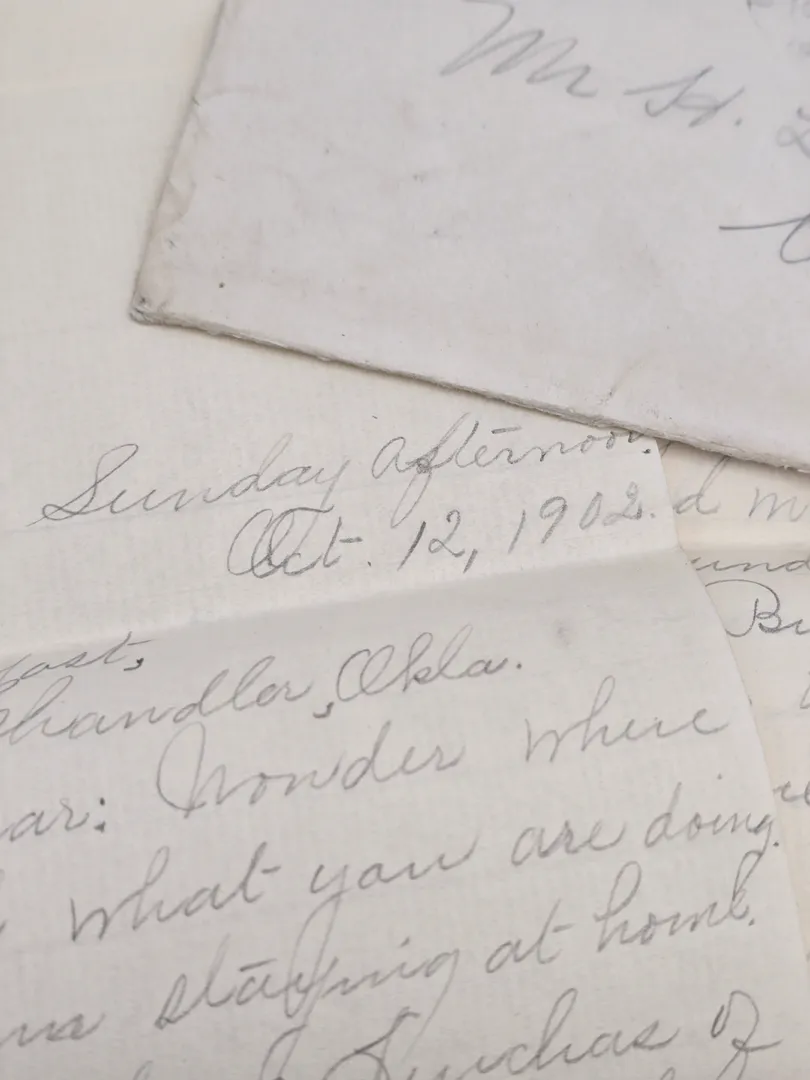 Mr H.
Sunday afternoon.
Oct. 12, 1902.
d m
Chandler, Okla.
ar: Wonder where
what you are doing.
staying at home.
of